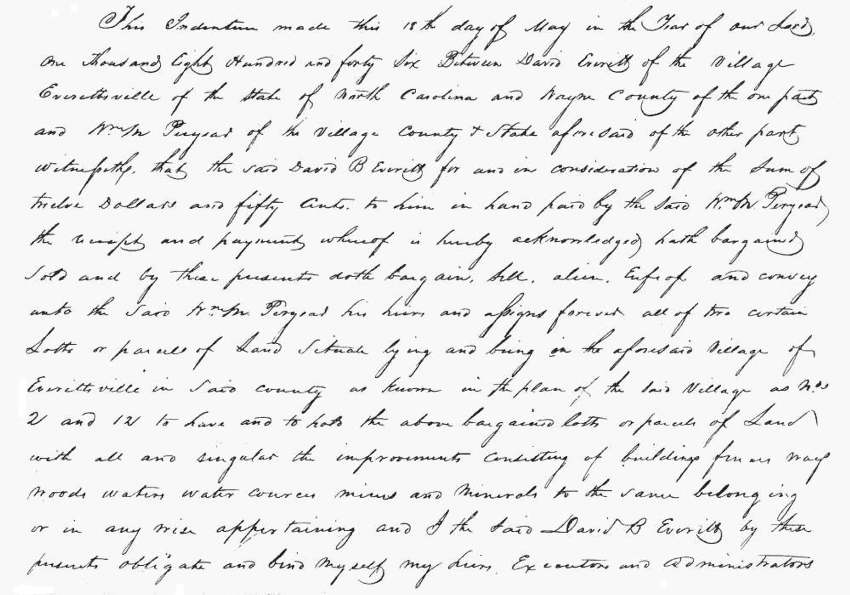 This Indenture made this 18th day of May in the Year of our Lord,
One thousand Eight Hundred and forty Six Between David Everitt of the Village
Everettsville of the State of North Carolina and Wayne County of the one part
and Wm M Peryear of the Village County & State aforesaid of the other part
Witnesseth, that the said David B Everitt for and in consideration of the Sum of
twelve Dollars and fifty Cents. to him in hand paid by the Said Wm M Peryear
the receipt and payment whereof is hereby acknowledged, hath bargained
Sold and by these presents doth bargain, Sell, alien, Enfeof and convey
unto the Said Wm M Peryear his heirs and assigns forever all of two certain
Lotts or parcels of Land Situate lying and being in the aforesaid Village of
Everettsville in Said County as Known in the plan of the Said Village as Nos
2 and 12 to have and to hold the above bargained lotts or parcels of Land
with all and singular the improvements Consisting of buildings fences ways
Woods waters water cources mines and Minerals to the same belonging
or in any wise appertaining and I the Said David B Everitt by these
presents obligate and bind Myself my heirs, Executors and administrators